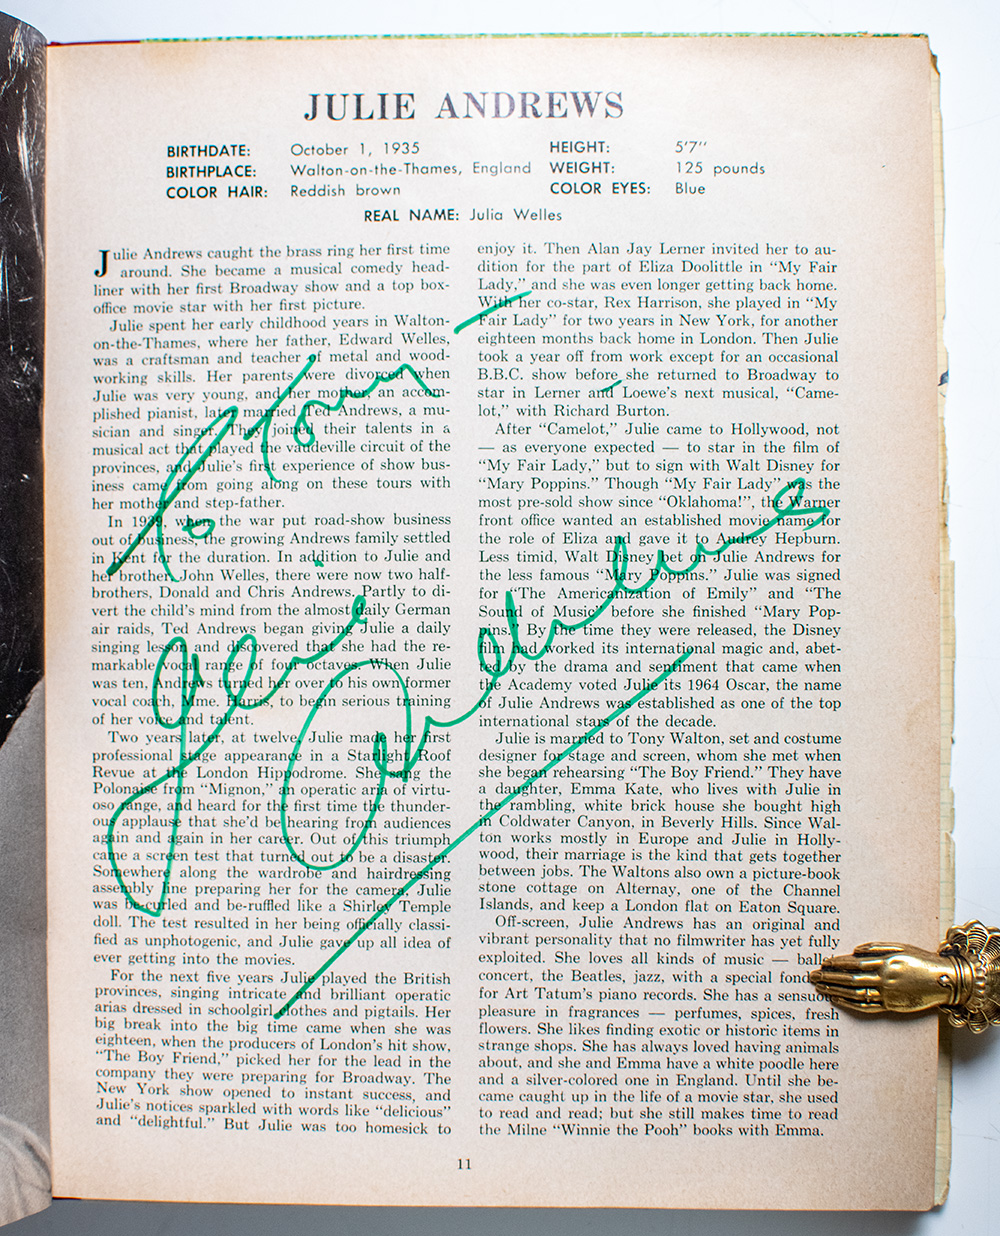 JULIE ANDREWS
BIRTHDATE: October 1, 1935 HEIGHT: 5'7"
BIRTHPLACE: Walton-on-the-Thames, England WEIGHT: 125 pounds
COLOR HAIR: Reddish brown COLOR EYES: Blue
REAL NAME: Julia Welles
Julie Andrews caught the brass ring her first time
around. She became a musical comedy head-
liner with her first Broadway show and a top box-
office movie star with her first picture.
Julie spent her early childhood years in Walton-
on-the-Thames, where her father, Edward Welles,
was a craftsman and teacher of metal and wood-
working skills. Her parents were divorced when
Julie was very young, and her mother, an accom-
plished pianist, later married Ted Andrews, a mu-
sician and singer. They joined their talents in a
musical act that played the vaudeville circuit of the
provinces, and Julie's first experience of show bus-
iness came from going along on these tours with
her mother and step-father.
In 1939, when the war put road-show business
out of business, the growing Andrews family settled
in Kent for the duration. In addition to Julie and
her brother, John Welles, there were now two half-
brothers, Donald and Chris Andrews. Partly to di-
vert the child's mind from the almost daily German
air raids, Ted Andrews began giving Julie a daily
singing lesson and discovered that she had the re-
markable vocal range of four octaves. When Julie
was ten, Andrews turned her over to his own former
vocal coach, Mme. Harris, to begin serious training
of her voice and talent.
Two years later, at twelve, Julie made her first
professional stage appearance in a Starlight Roof
Revue at the London Hippodrome. She sang the
Polonaise from "Mignon," an operatic aria of virtu-
oso range, and heard for the first time the thunder-
ous applause that she'd be hearing from audiences
again and again in her career. Out of this triumph
came a screen test that turned out to be a disaster.
Somewhere along the wardrobe and hairdressing
assembly line preparing her for the camera, Julie
was be-curled and be-ruffled like a Shirley Temple
doll. The test resulted in her being officially classi-
fied as unphotogenic, and Julie gave up all idea of
ever getting into the movies.
For the next five years Julie played the British
provinces, singing intricate and brilliant operatic
arias dressed in schoolgirl clothes and pigtails. Her
big break into the big time came when she was
eighteen, when the producers of London's hit show,
"The Boy Friend," picked her for the lead in the
company they were preparing for Broadway. The
New York show opened to instant success, and
Julie's notices sparkled with words like "delicious"
and "delightful." But Julie was too homesick to
enjoy it. Then Alan Jay Lerner invited her to au-
dition for the part of Eliza Doolittle in "My Fair
Lady," and she was even longer getting back home.
With her co-star, Rex Harrison, she played in "My
Fair Lady" for two years in New York, for another
eighteen months back home in London. Then Julie
took a year off from work except for an occasional
B.B.C. show before she returned to Broadway to
star in Lerner and Loewe's next musical, "Came-
lot," with Richard Burton.
After "Camelot," Julie came to Hollywood, not
— as everyone expected — to star in the film of
"My Fair Lady," but to sign with Walt Disney for
"Mary Poppins." Though "My Fair Lady" was the
most pre-sold show since "Oklahoma!", the Warner
front office wanted an established movie name for
the role of Eliza and gave it to Audrey Hepburn.
Less timid, Walt Disney bet on Julie Andrews for
the less famous "Mary Poppins." Julie was signed
for "The Americanization of Emily" and "The
Sound of Music" before she finished "Mary Pop-
pins." By the time they were released, the Disney
film had worked its international magic and, abet-
ted by the drama and sentiment that came when
the Academy voted Julie its 1964 Oscar, the name
of Julie Andrews was established as one of the top
international stars of the decade.
Julie is married to Tony Walton, set and costume
designer for stage and screen, whom she met when
she began rehearsing "The Boy Friend." They have
a daughter, Emma Kate, who lives with Julie in
the rambling, white brick house she bought high
in Coldwater Canyon, in Beverly Hills. Since Wal-
ton works mostly in Europe and Julie in Holly-
wood, their marriage is the kind that gets together
between jobs. The Waltons also own a picture-book
stone cottage on Alternay, one of the Channel
Islands, and keep a London flat on Eaton Square.
Off-screen, Julie Andrews has an original and
vibrant personality that no filmwriter has yet fully
exploited. She loves all kinds of music — ballet,
concert, the Beatles, jazz, with a special fond
for Art Tatum's piano records. She has a sensuous
pleasure in fragrances — perfumes, spices, fresh
flowers. She likes finding exotic or historic items in
strange shops. She has always loved having animals
about, and she and Emma have a white poodle here
and a silver-colored one in England. Until she be-
came caught up in the life of a movie star, she used
to read and read; but she still makes time to read
the Milne "Winnie the Pooh" books with Emma.
11
To Tony —
Julie
Andrews